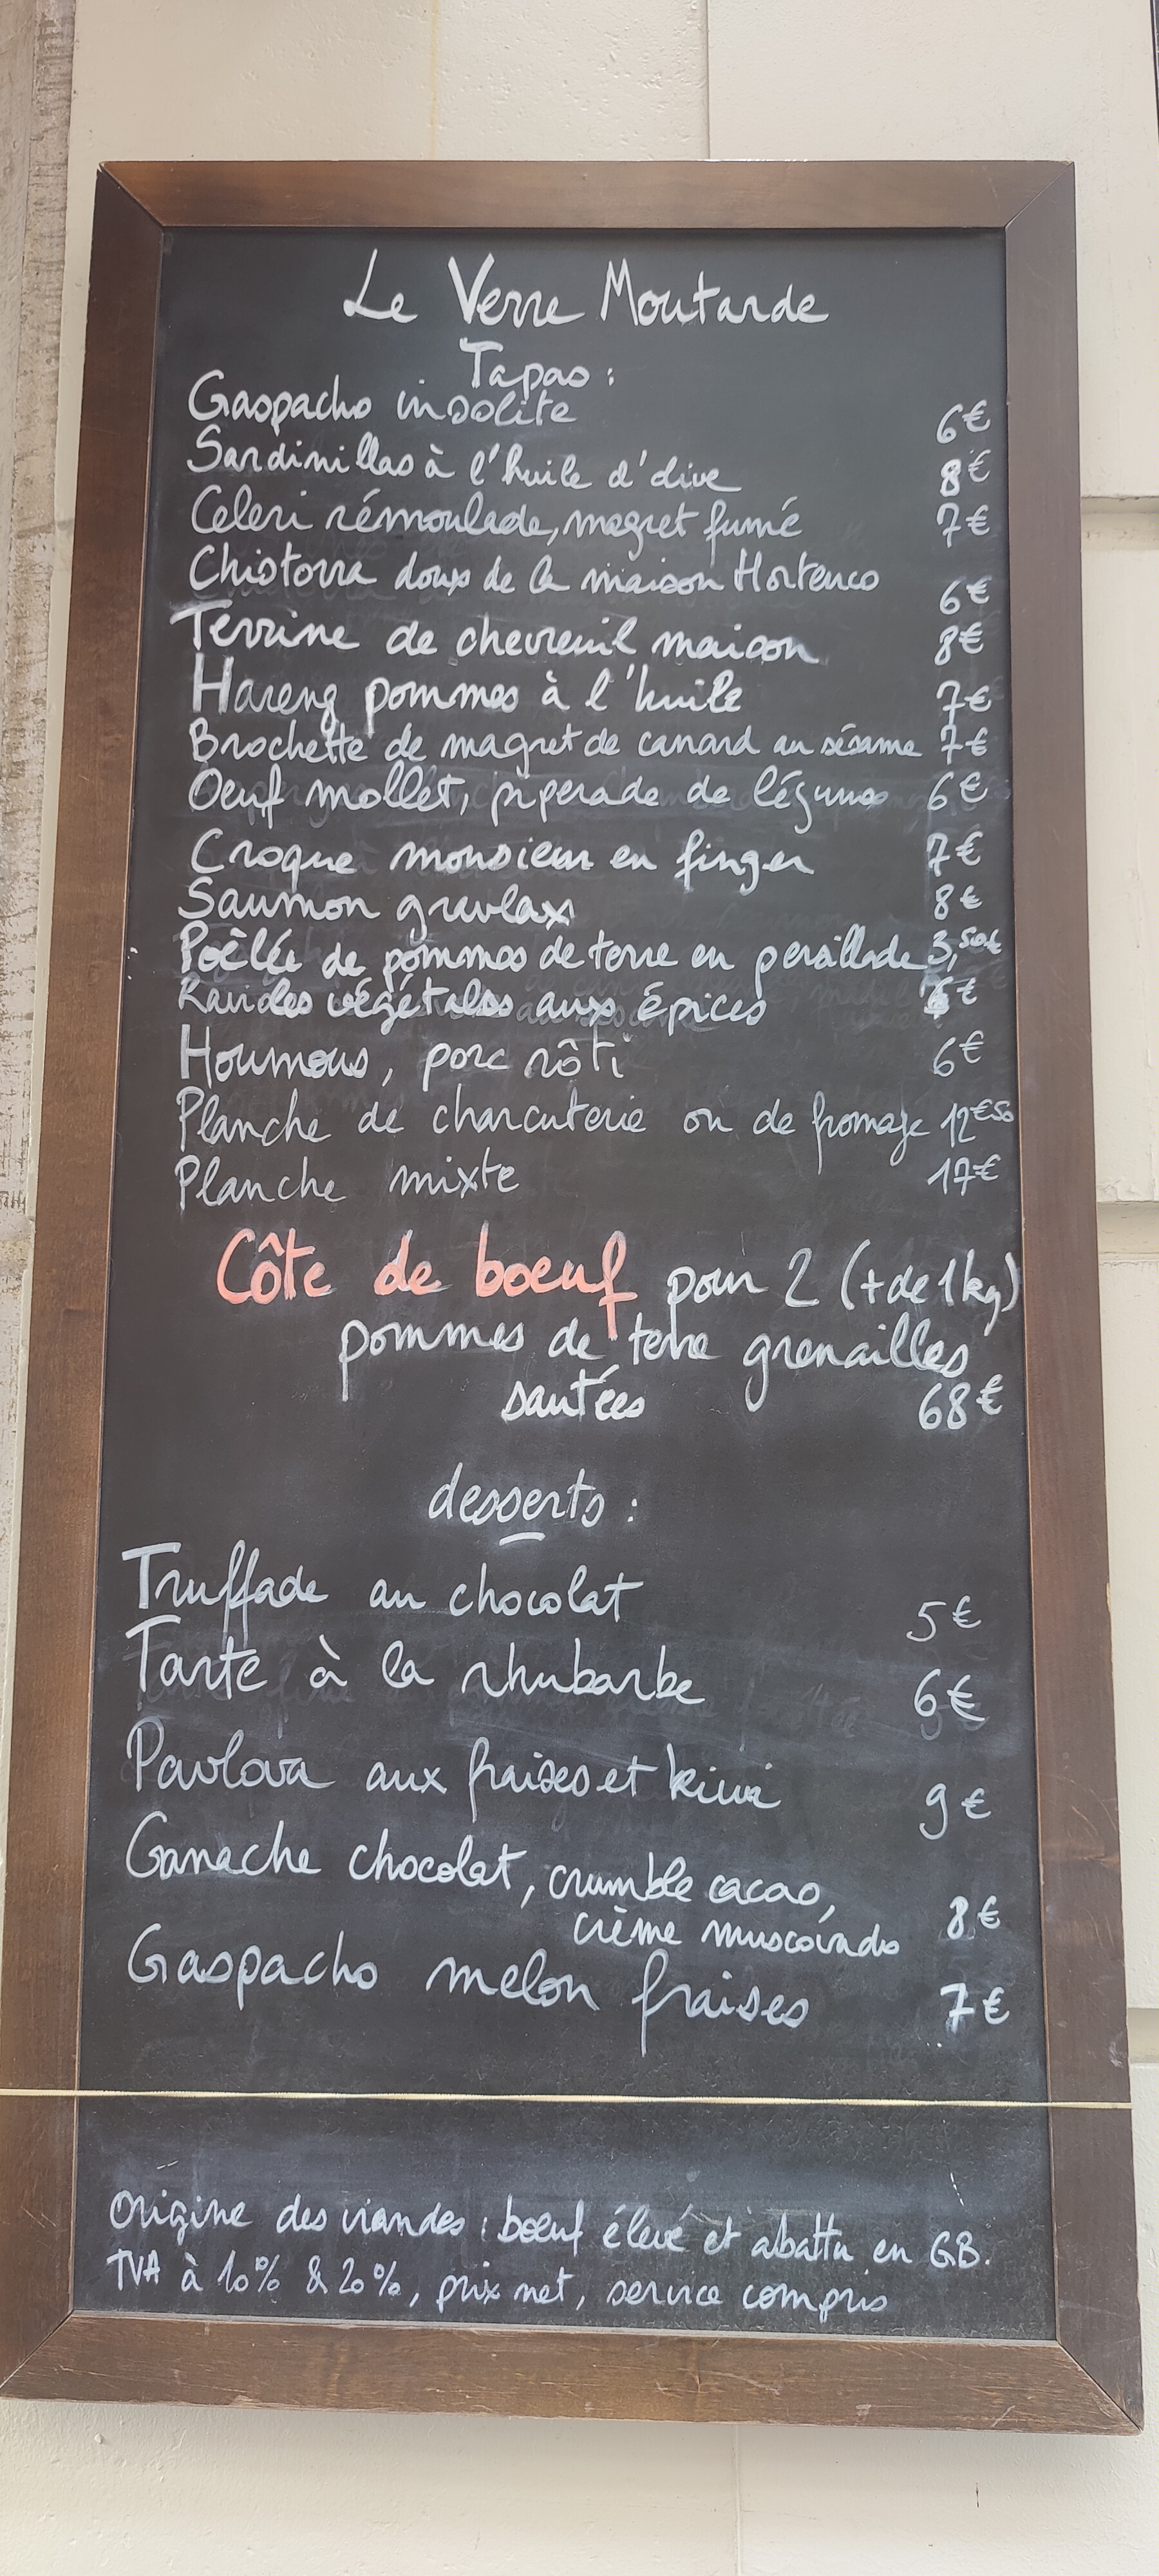 Le Verre Moutarde
Tapas :
Gaspacho insolite 6€
Sardinillas à l'huile d'olive 8€
Celeri rémoulade, magret fumé 7€
Chistorra doux de la maison Hortenco 6€
Terrine de chevreuil maison 8€
Hareng pommes à l'huile 7€
Brochette de magret de canard au sésame 7€
Oeuf mollet, piperade de légumes 6€
Croque monsieur en finger 7€
Saumon gravlax 8€
Poêlée de pommes de terre en persillade 3,50€
Ravioles végétales aux épices 6€
Houmous, porc rôti 6€
Planche de charcuterie ou de fromage 12€50
Planche mixte 17€
Côte de boeuf pour 2 (+ de 1kg)
pommes de terre grenailles
sautées 68€
desserts :
Truffade au chocolat 5€
Tarte à la rhubarbe 6€
Pavlova aux fraises et kiwi 9€
Ganache chocolat, crumble cacao,
crème muscovado 8€
Gaspacho melon fraises 7€
Origine des viandes : boeuf élevé et abattu en GB.
TVA à 10% & 20%, prix net, service compris